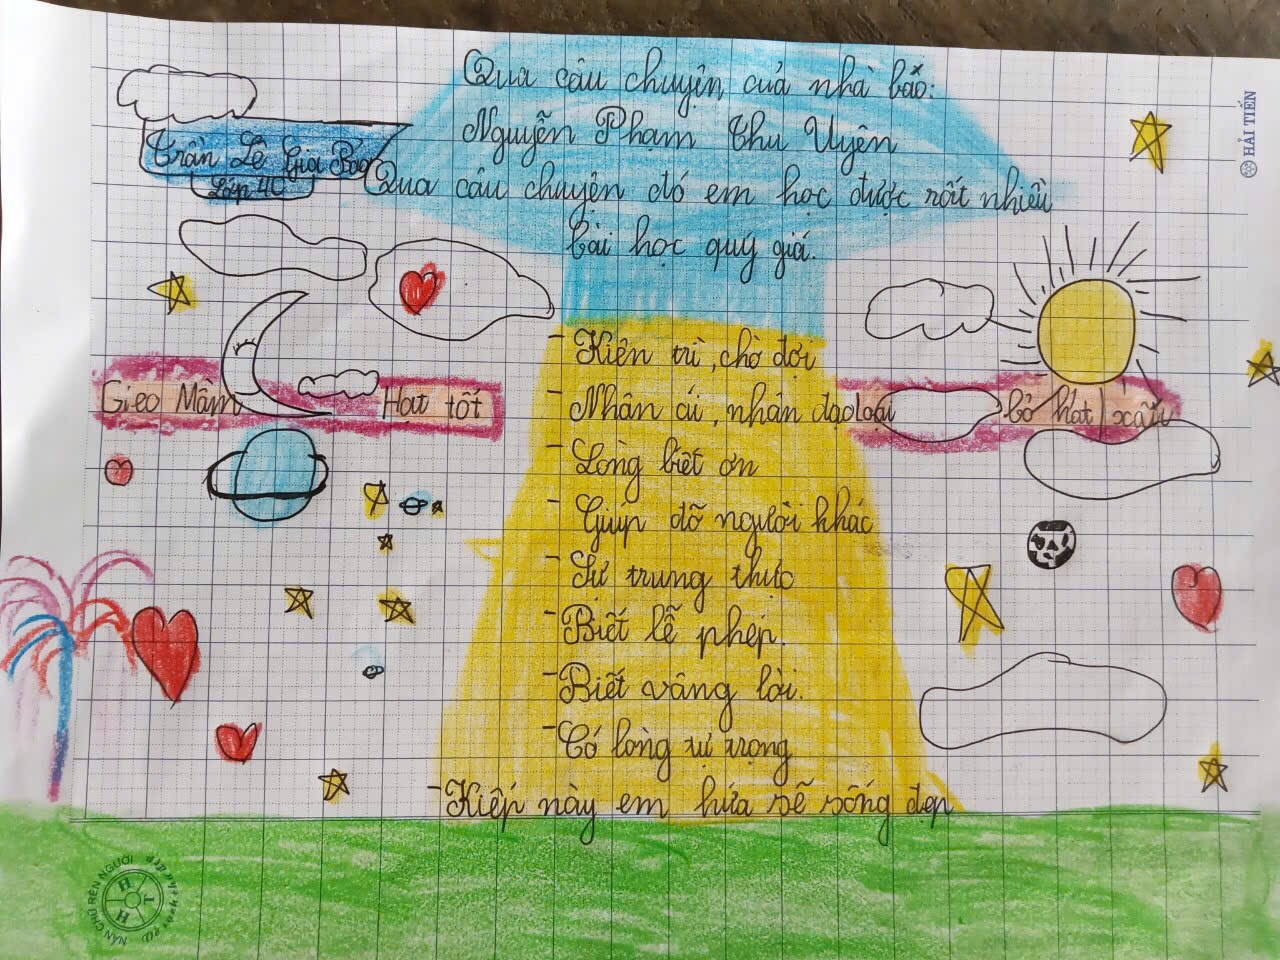 Qua câu chuyện của nhà bảo:
Nguyễn Phạm Thu Uyên
Trần Lê Gia Bảo
Lớp 4C
Qua câu chuyện đó em học được rất nhiều
bài học quý giá.
- Kiên trì, chờ đợi
Gieo Mầm Hạt tốt
- Nhân ái, nhân đạo
loại bỏ hạt xấu
- Lòng biết ơn
- Giúp đỡ người khác
- Sự trung thực
- Biết lễ phép.
- Biết vâng lời.
- Có lòng tự trọng
- Kiếp này em hứa sẽ sống đẹp
HẢI TIẾN
NẮN CHỮ RÈN NGƯỜI
H T H